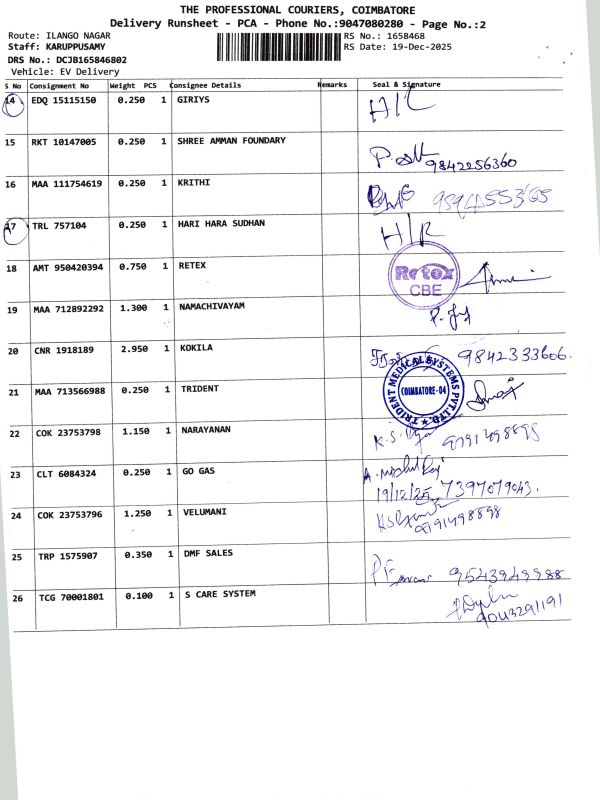 THE PROFESSIONAL COURIERS, COIMBATORE
Delivery Runsheet - PCA - Phone No.:9047080280 - Page No.:2
Route: ILANGO NAGAR RS No.: 1658468
Staff: KARUPPUSAMY RS Date: 19-Dec-2025
DRS No.: DCJB165846802
Vehicle: EV Delivery
S No Consignment No Weight PCS Consignee Details Remarks Seal & Signature
14 EDQ 15115150 0.250 1 GIRIYS
15 RKT 10147005 0.250 1 SHREE AMMAN FOUNDARY 9842256360
16 MAA 111754619 0.250 1 KRITHI
17 TRL 757104 0.250 1 HARI HARA SUDHAN H/R
18 AMT 950420394 0.750 1 RETEX Retex CBE
19 MAA 712892292 1.300 1 NAMACHIVAYAM
20 CNR 1918189 2.950 1 KOKILA 9842333606.
21 MAA 713566988 0.250 1 TRIDENT TRIDENT MEDICAL SYSTEMS PVT.LTD. COIMBATORE-04
22 COK 23753798 1.150 1 NARAYANAN
23 CLT 6084324 0.250 1 GO GAS 19/12/25, 7397079043.
24 COK 23753796 1.250 1 VELUMANI
25 TRP 1575907 0.350 1 DMF SALES 9543949988
26 TCG 70001801 0.100 1 S CARE SYSTEM 9043291191